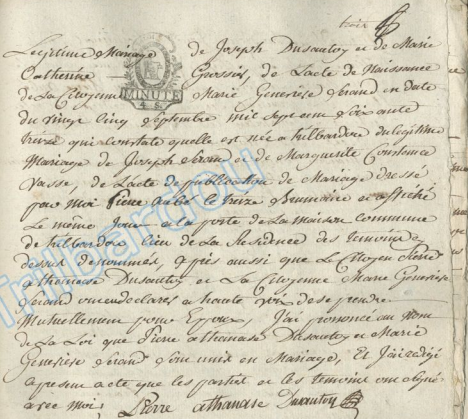 trois
Legitime Mariage de Joseph Dusautoy et de Marie
Catherine Grossin, de Lacte de Naissance
de La Citoyenne Marie Genevieve en date
MINUTE
4 S.
du vingt cinq Septembre mil Sept cent Soixante
treize qui constate quelle est née a trilbardou du legitime
Mariage de Joseph et de Marguerite Constance
Vasse, de Lacte de publication de Mariage dressé
par moi Pierre le treize Brumaire et affiché
Le même Jour a la porte de La Maison commune
de trilbardou lieu de La Residence des temoins
dessus denommés, après aussi que Le Citoyen Pierre
athanase Dusautoy et La Citoyenne Marie Genevieve
ont declarés a haute voix de se prendre
Mutuellement pour Epoux, J'ai prononcé au Nom
de La Loi que Pierre athanase Dusautoy et Marie
Genevieve Sont unis en Mariage, Et J'ai redigé
le present acte que les parties et les temoins ont signé
avec moi. Pierre athanase Dusautoy
trilbardou